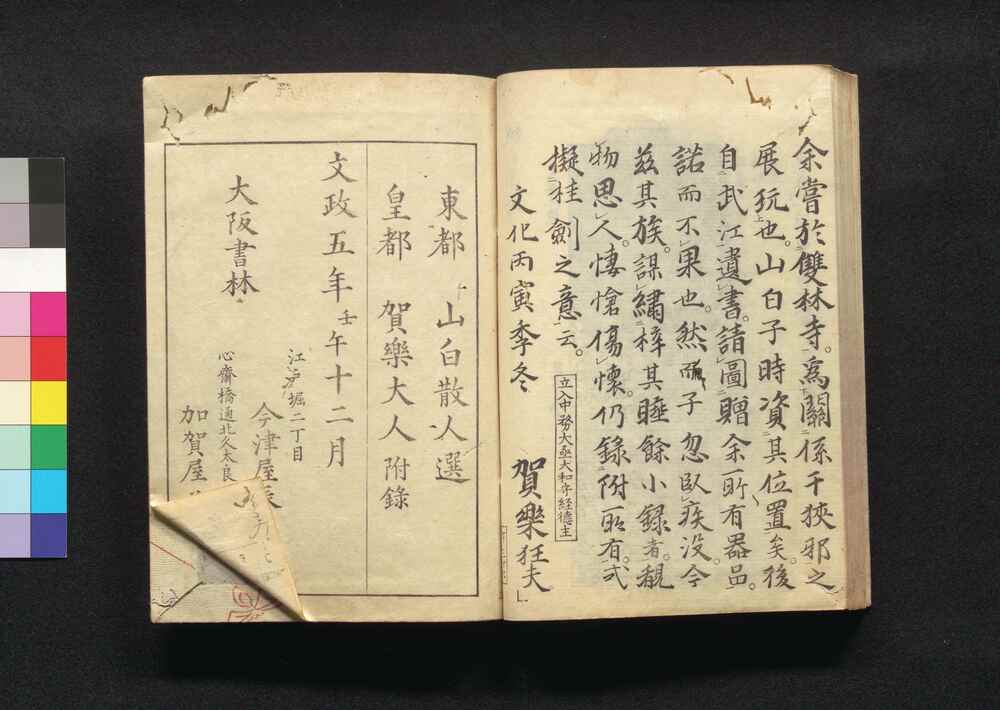 余嘗於雙林寺。為關係于狹邪之
展玩也。山白子時資其位置矣。後
自武江遺書。請圖贈余所有器品。
諾而不果也。然而子忽臥疾没。今
茲其族。謀繡梓其睡餘小録者。覩
物思人。悽愴傷懐。仍録附所有。弍
擬挂劍之意云。
文化丙寅季冬
賀樂狂夫
立入中務大丞大和守経德主
東都 山白散人選
皇都 賀樂大人附錄
文政五年壬午十二月
大阪書林
江戸堀二丁目
今津屋辰
心齋橋通北久太良
加賀屋